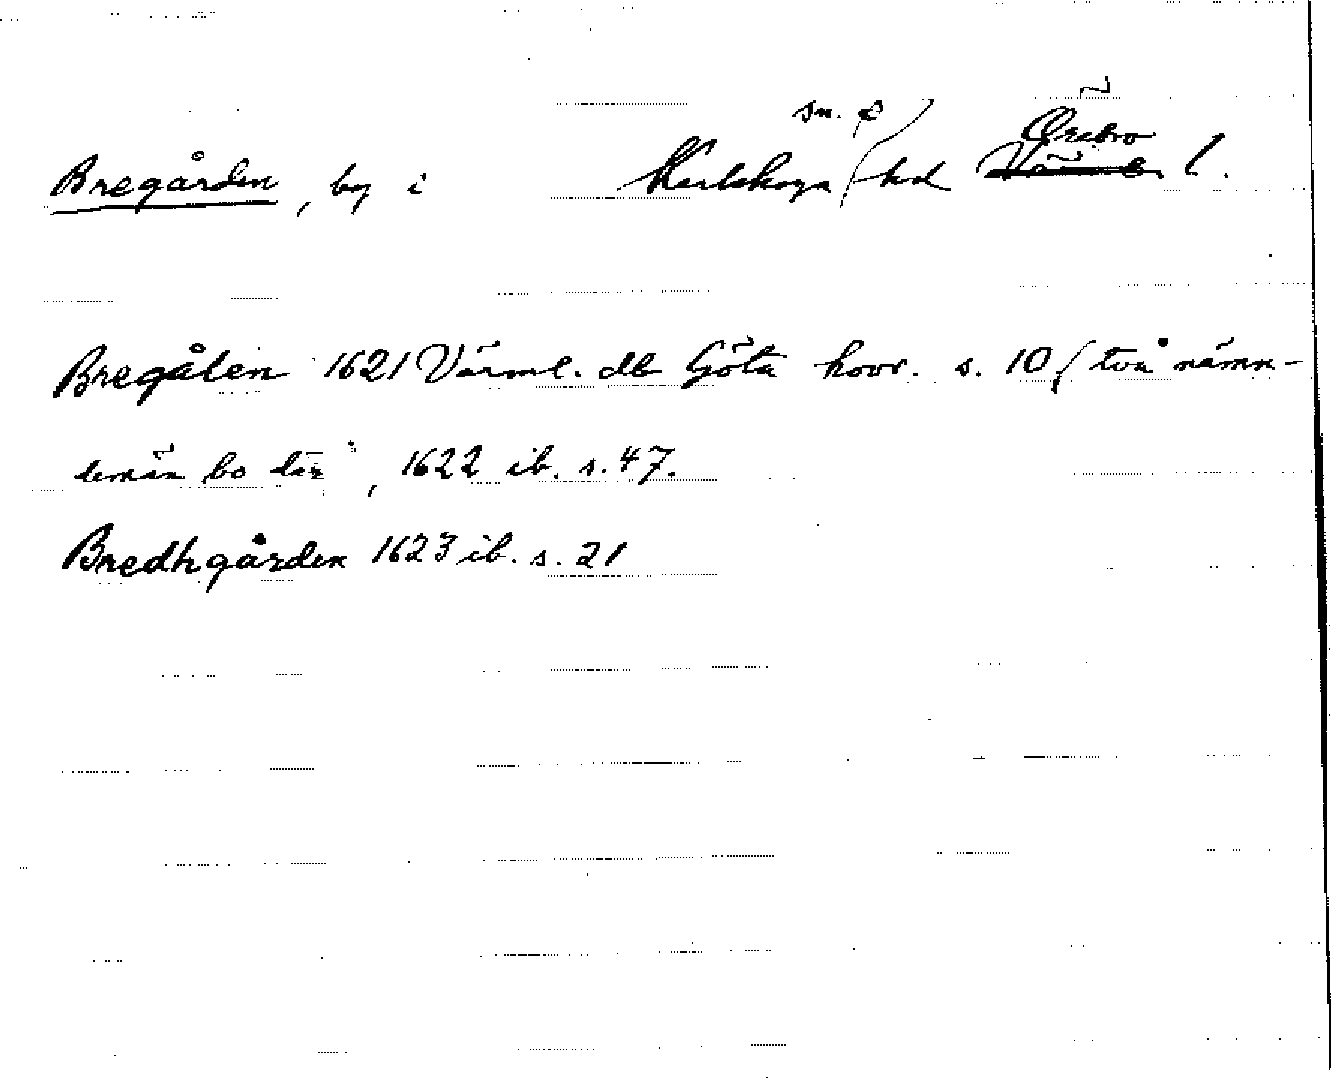 Bregården, by i Karlskoga sn. o hd Örebro l.
Bregålen 1621 Värml. db Göta hovr. s. 10 (två nämn-
demän bo där, 1622 ib. s. 47.
Bredhgården 1623 ib. s. 21